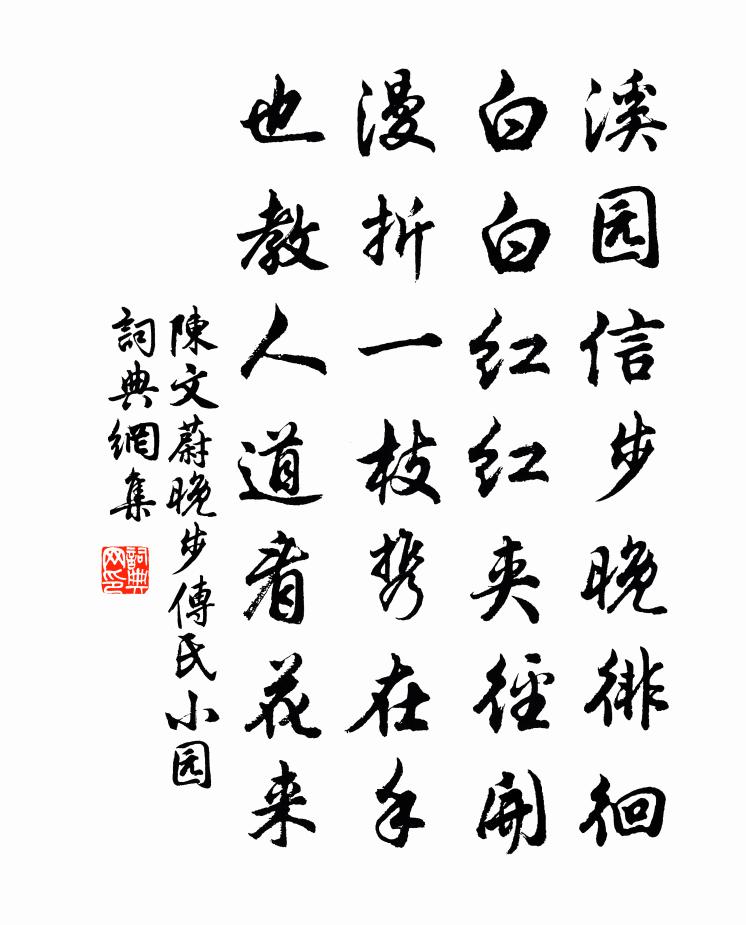 溪园信步晚徘徊
白白红红夹徑開
漫折一枝携在手
也教人道看花来
陳文蔚晚步傅氏小园
詞典網集
詞典网印